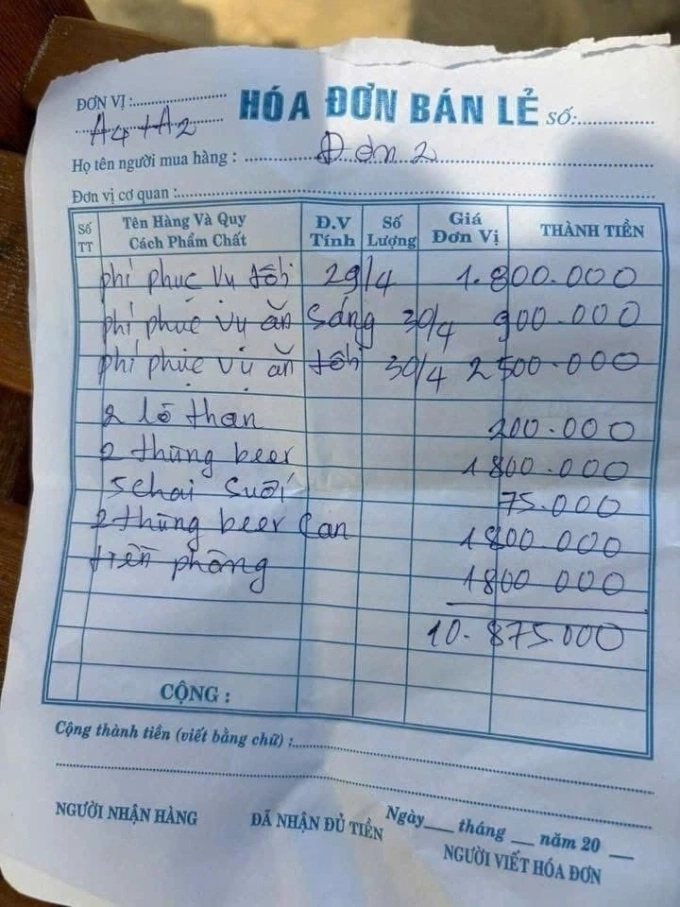 ĐƠN VỊ :
A4+A2
HÓA ĐƠN BÁN LẺ SỐ:
Họ tên người mua hàng : Đơn 2
Đơn vị cơ quan :
Số TT
Tên Hàng Và Quy Cách Phẩm Chất
Đ.V Tính
Số Lượng
Giá Đơn Vị
THÀNH TIỀN
phí phục vụ tối 29/4 1.800.000
phí phục vụ ăn sáng 30/4 900.000
phí phục vụ ăn tối 30/4 2500.000
2 lò than 200.000
2 thùng beer 1800.000
5 chai suối 75.000
2 thùng beer can 1800.000
tiền phòng 1800 000
10.875.000
CỘNG :
Cộng thành tiền (viết bằng chữ) :
Ngày tháng năm 20
NGƯỜI NHẬN HÀNG ĐÃ NHẬN ĐỦ TIỀN NGƯỜI VIẾT HÓA ĐƠN